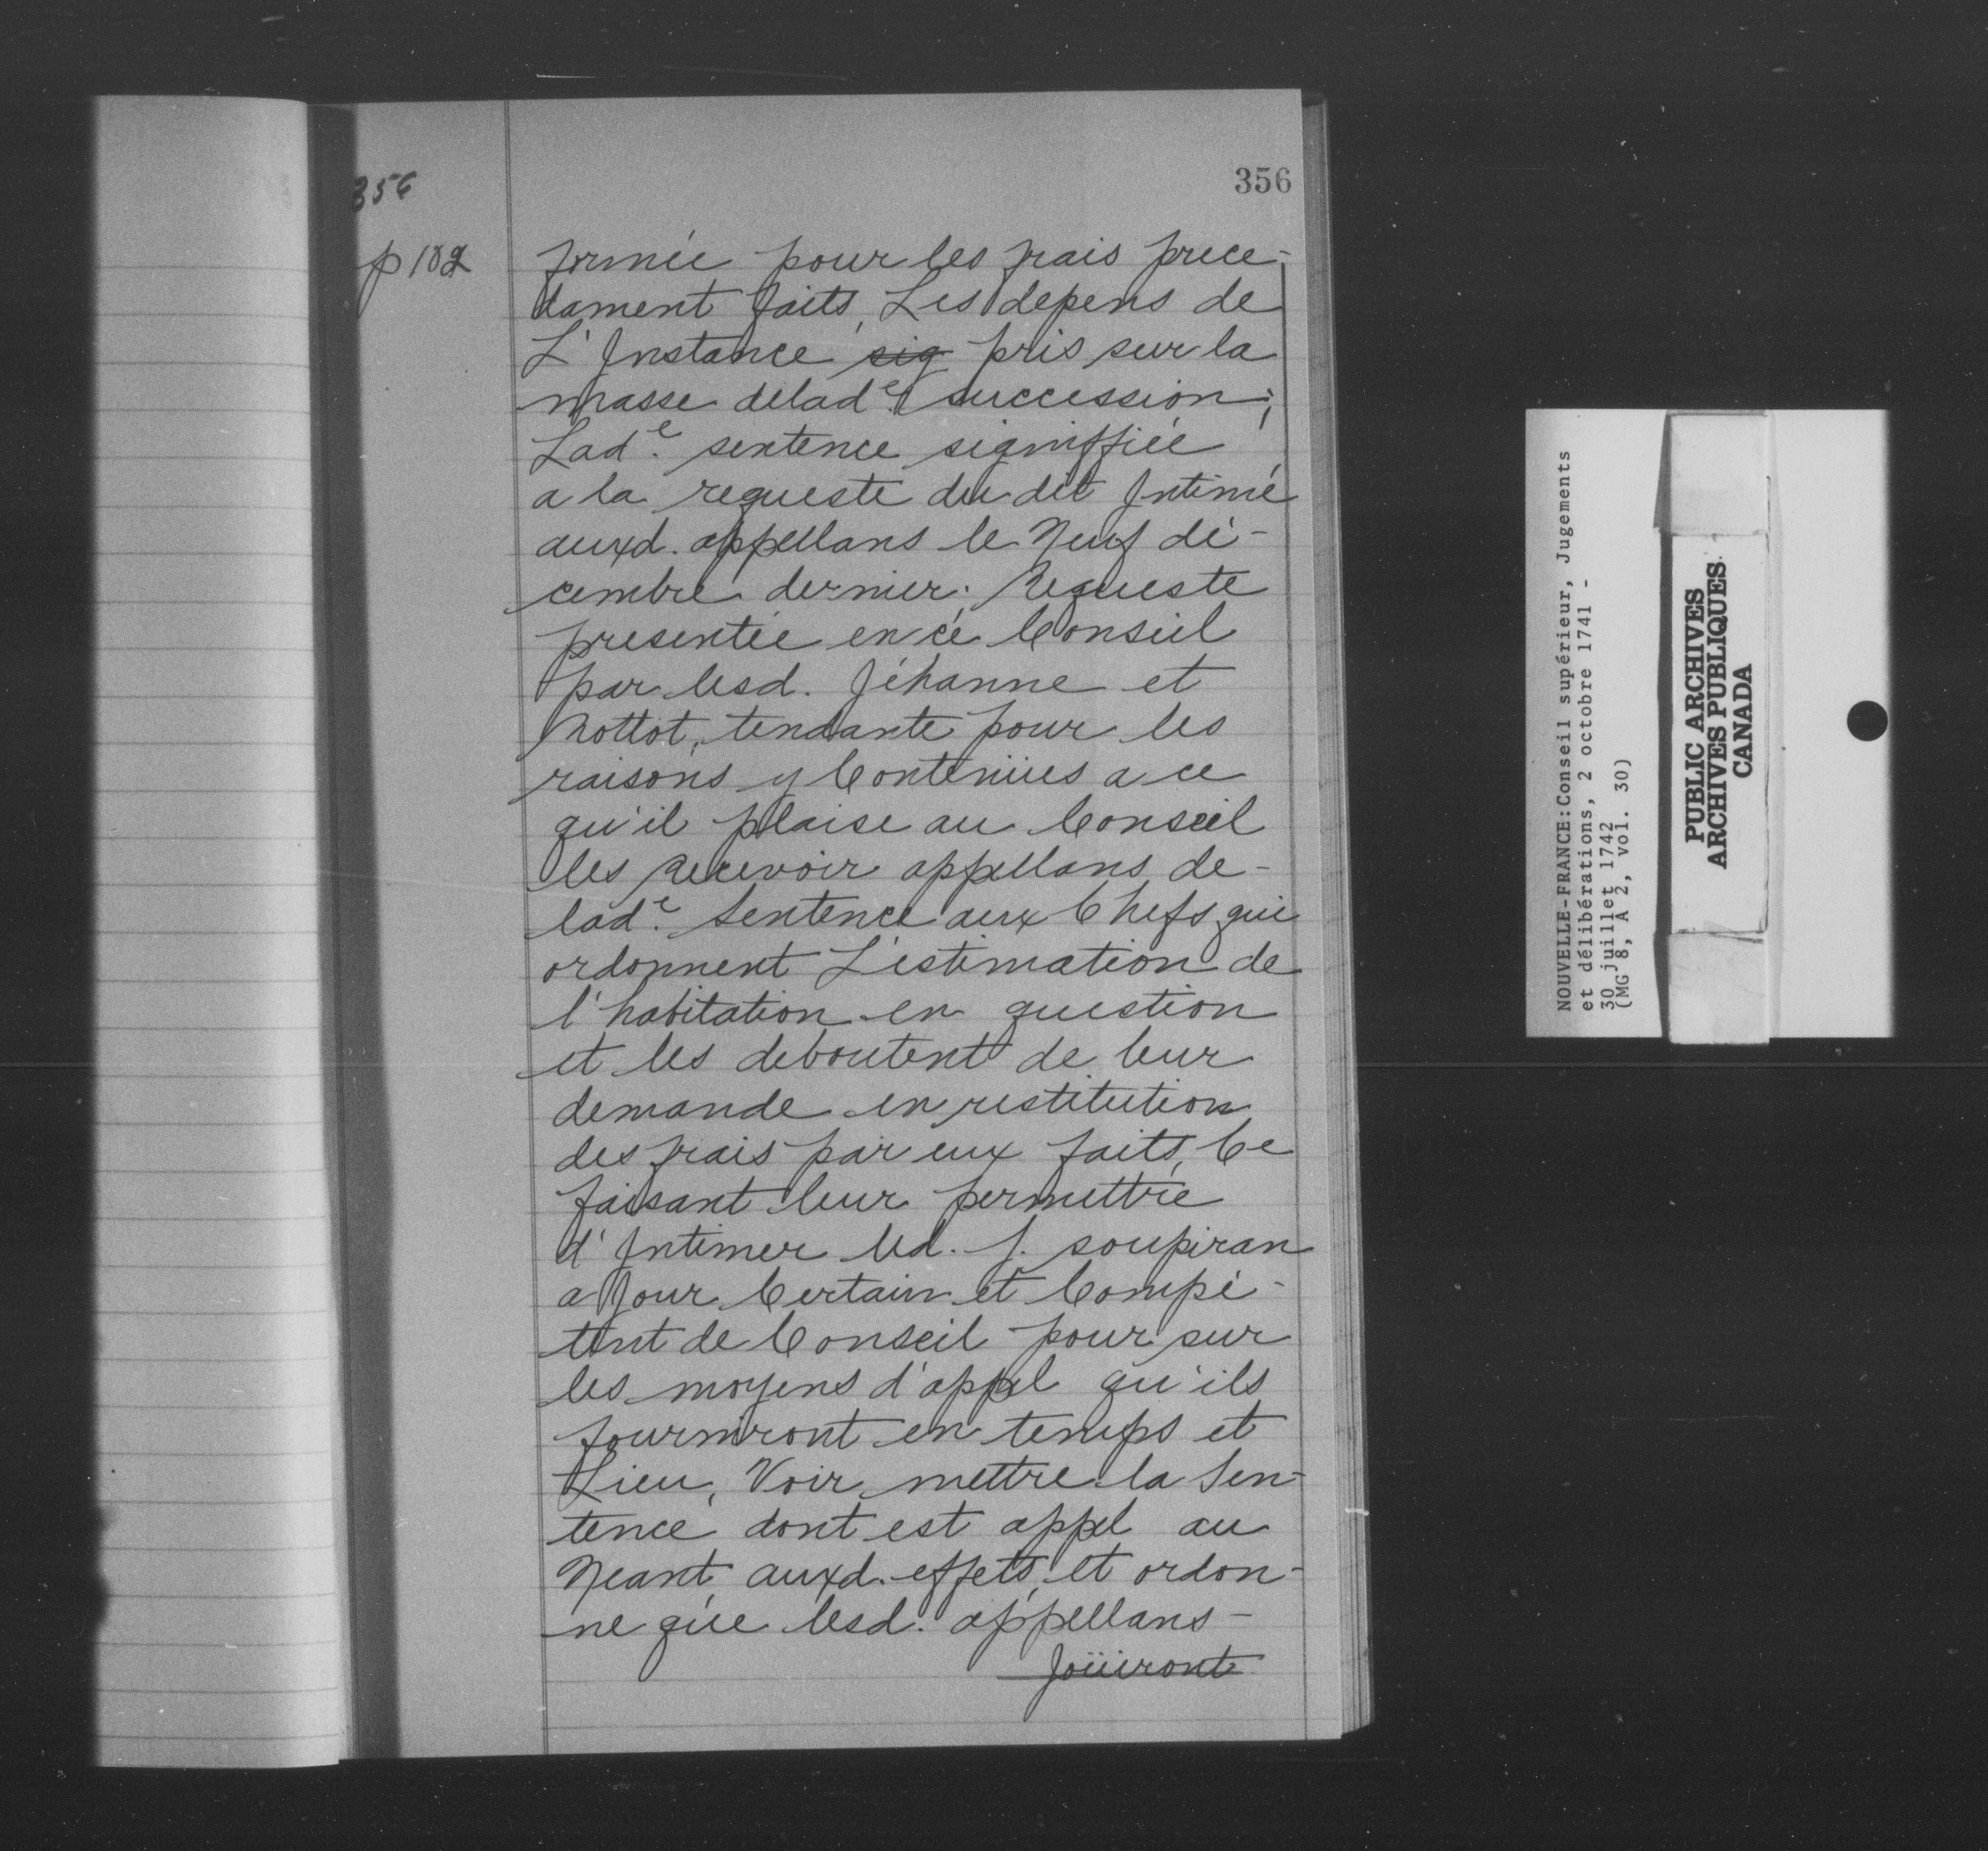 356
356
p 102
formée pour les frais prece-
dament faits, Les depens de
L'Instance sig pris sur la
masse delad.e succession;
Lad.e sentence signiffiée
a la requeste du dit Intimé
auxd. appellans le Neuf dé-
cembre dernier. Requeste
presentée en ce Conseil
par lesd. Jéhanne et
Nottot, tendante pour les
raisons y Contenües a ce
qu'il plaise au Conseil
les Recevoir appellans de-
lad.e Sentence aux Chefs qui
ordonnent L'estimation de
l'habitation en question
et les deboutent de leur
demande en restitution
des frais par eux faits, Ce
faisant leur permettre
d'Intimer led. S. soupiran
a Jour Certain et Compé-
tent de Conseil pour sur
les moyens d'appel qu'ils
fourniront en temps et
Lieu, Voir mettre la Sen-
tence dont est appel au
Neant, auxd. effets, et ordon-
ne que lesd. appellans-
Joüiront
NOUVELLE-FRANCE: Conseil supérieur, Jugements
et délibérations, 2 octobre 1741 -
30 juillet 1742
(MG 8, A 2, vol. 30)
PUBLIC ARCHIVES
ARCHIVES PUBLIQUES
CANADA